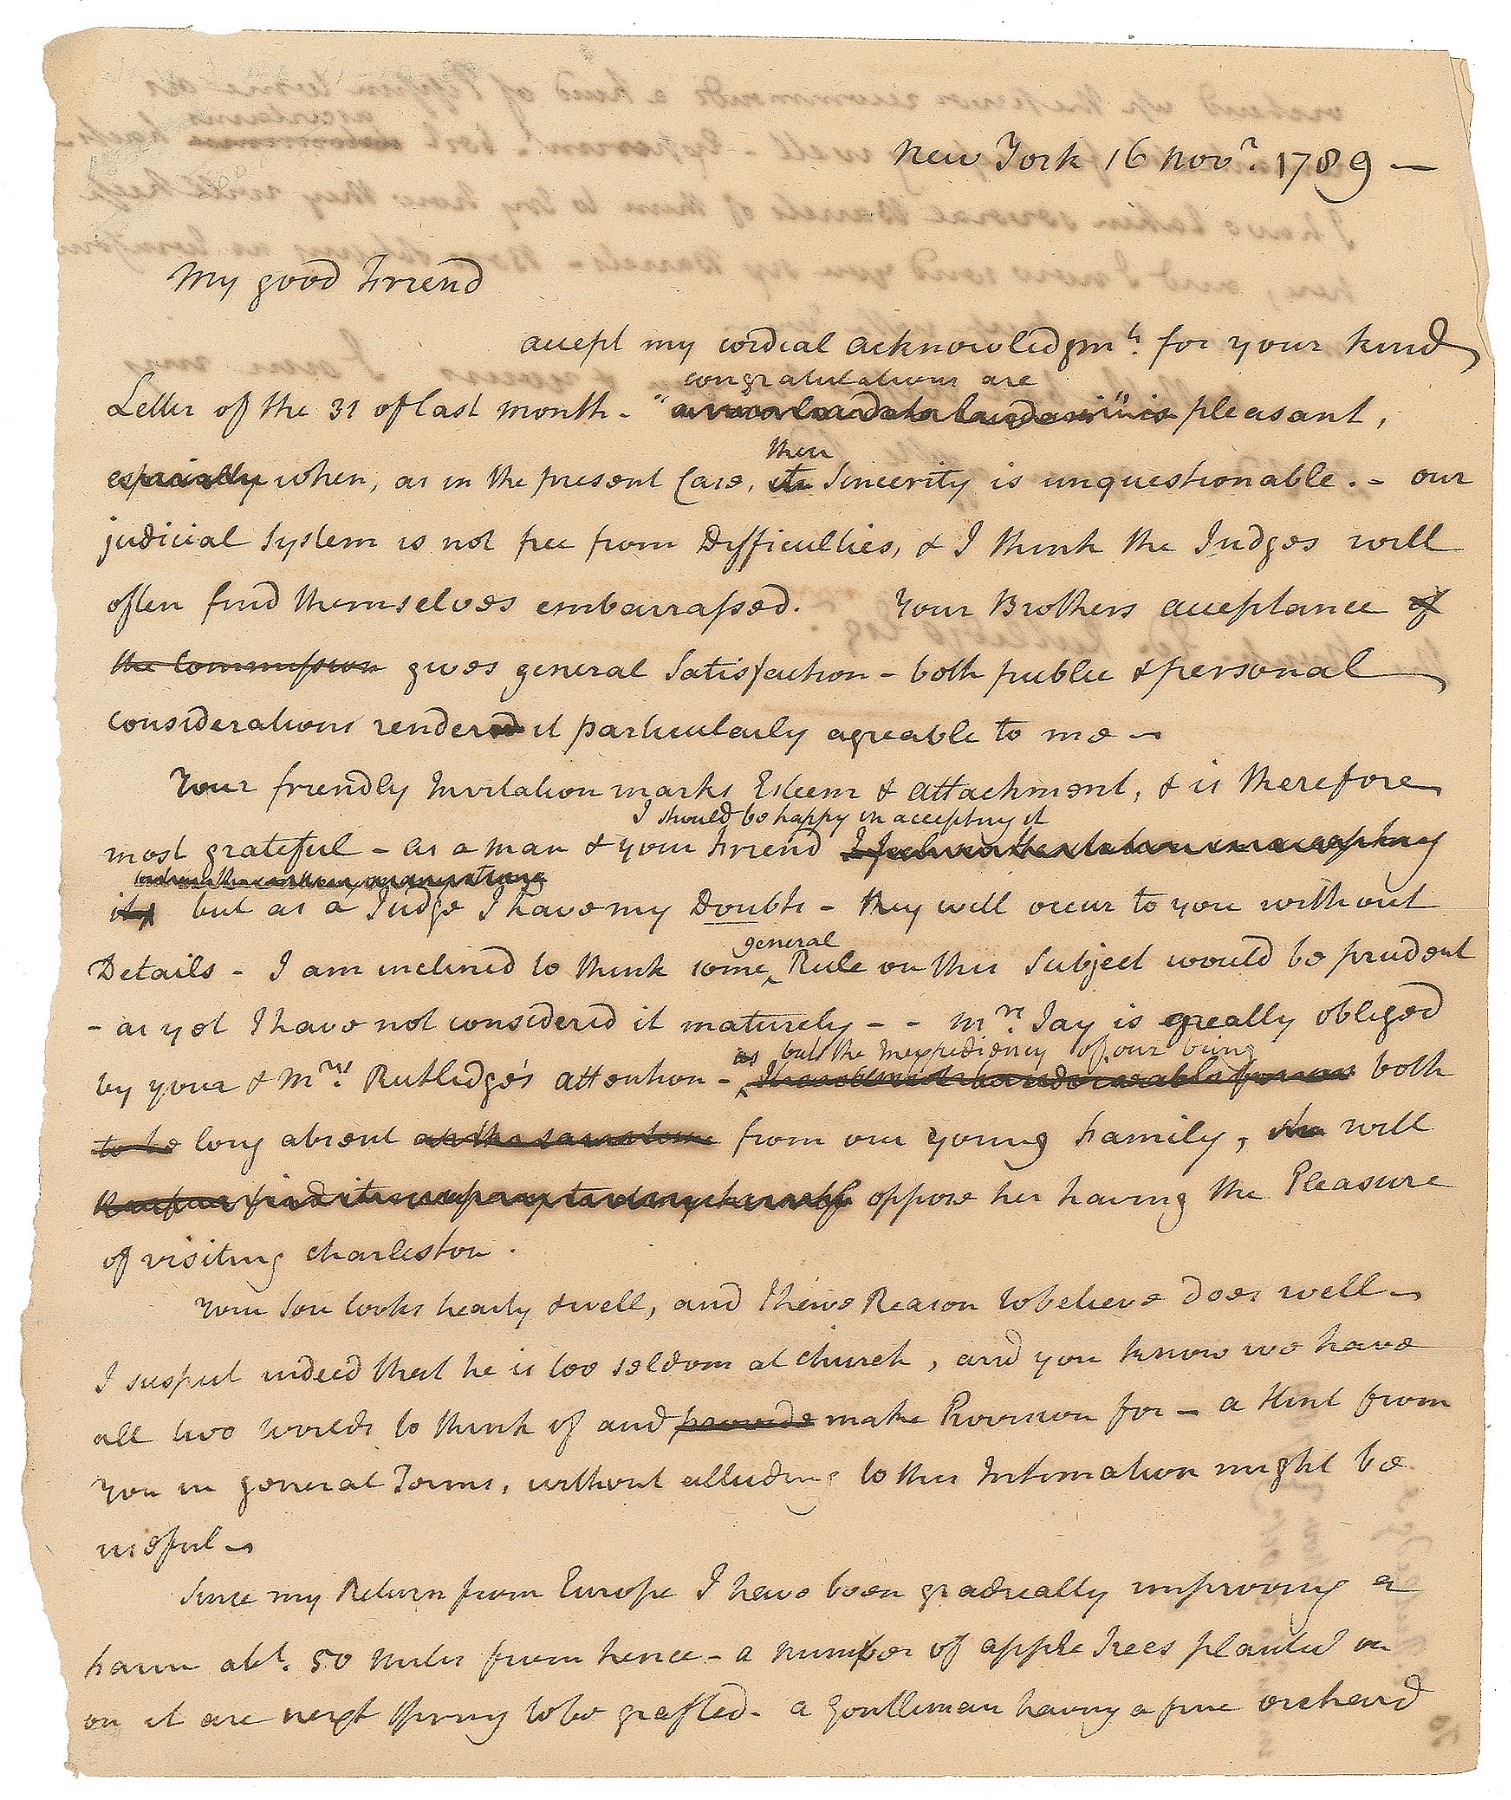 New York 16 Novr. 1789 —
My good Friend
accept my cordial acknowledgmts. for your kind
congratulations are
Letter of the 31 of last month - "a viro laudato laudari" is pleasant,
their
especially when, as in the present Case, its Sincerity is unquestionable. - our
judicial System is not free from Difficulties, & I think the Judges will
often find themselves embarrassed. Your Brothers acceptance of
the Commission gives general Satisfaction - both public & personal
considerations rendered it particularly agreable to me -
Your friendly Invitation marks Esteem & attachment, & is therefore
I should be happy in accepting it
most grateful - as a man & your Friend I
it, but as a Judge I have my Doubts - they will occur to you without
general
Details - I am inclined to think some Rule on this Subject would be prudent
- as yet I have not considered it maturely - - Mrs. Jay is greatly obliged
as but the Inexpediency of our being
by your & Mrs. Rutledge's attention - both
to be long absent at the same time from our young Family, she will
oppose her having the Pleasure
of visiting Charleston.
Your Son looks hearty & well, and I have Reason to believe does well -
I suspect indeed that he is too seldom at church, and you know we have
all two worlds to think of and provide make Provision for - a Hint from
You in general Terms, without alluding to this Intimation might be
useful -
Since my Return from Europe I have been gradually improving a
Farm abt. 50 miles from hence - a number of apple Trees planted on
on it are next Spring to be grafted - a Gentleman having a fine orchard